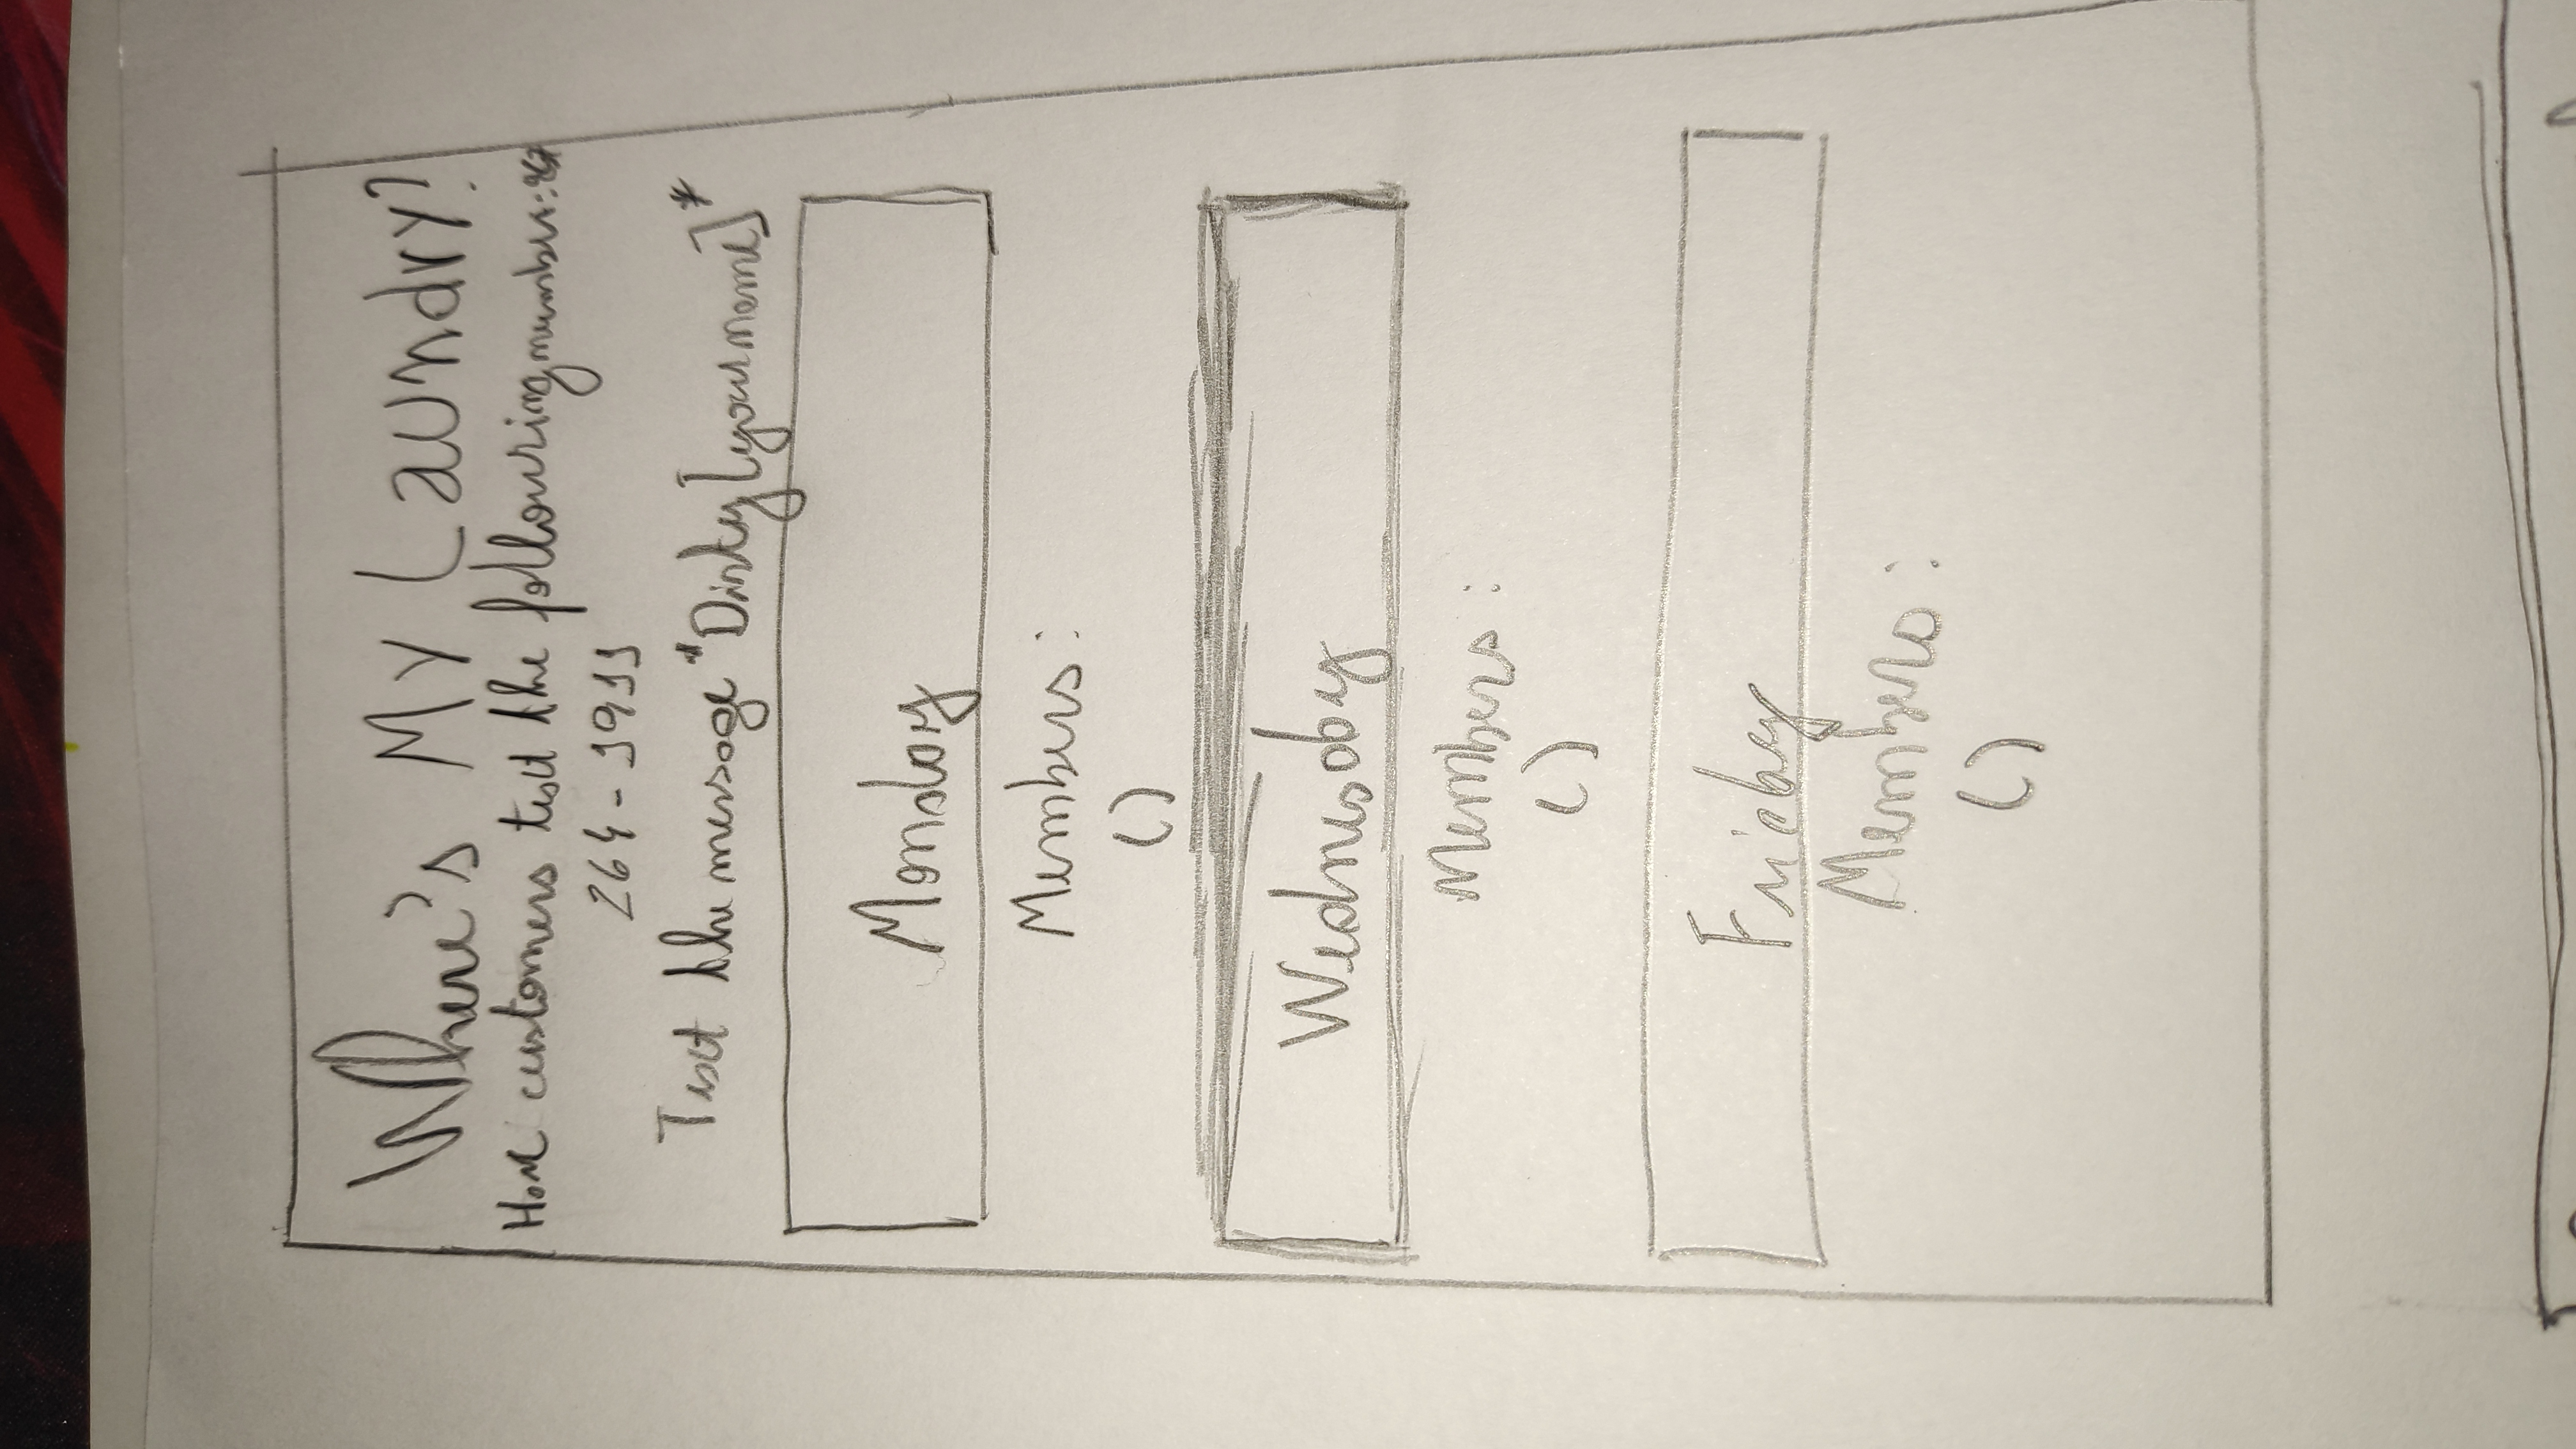 Where's My Laundry?
Have customers text the following number:
264-1911
Text the message "Dirty [your name]"
Monday
Members:
()
Wednesday
Members:
()
Friday
Members:
()